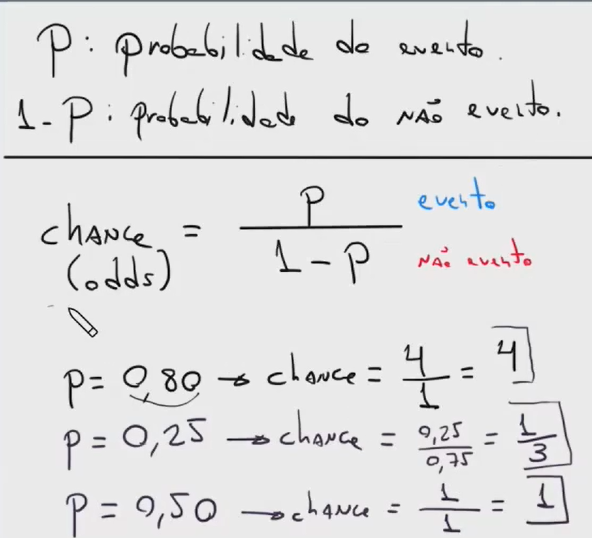 P: probabilidade do evento.
1-P: probabilidade do NÃO evento.
chance (odds) = P / 1-P
evento
NÃO evento
p= 0,80 → chance = 4/1 = 4
p = 0,25 → chance = 0,25/0,75 = 1/3
p = 0,50 → chance = 1/1 = 1